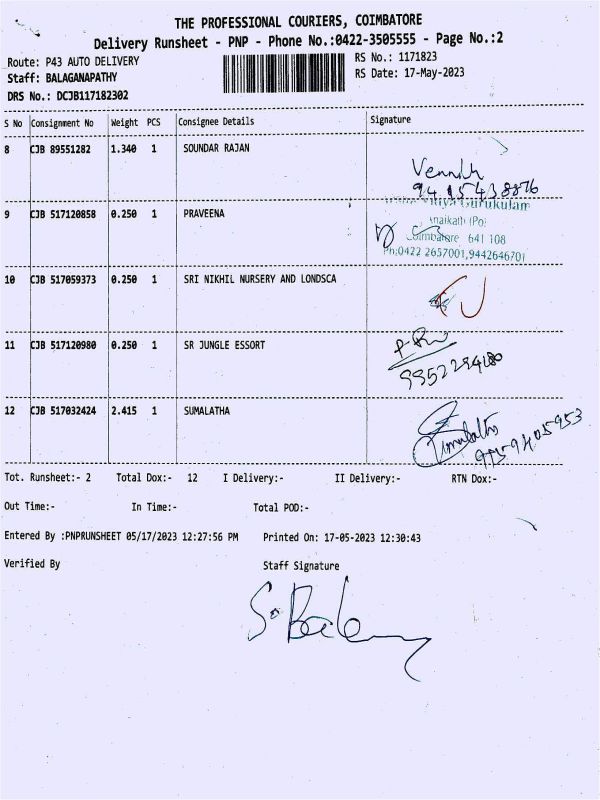 THE PROFESSIONAL COURIERS, COIMBATORE
Delivery Runsheet - PNP - Phone No.:0422-3505555 - Page No.:2
Route: P43 AUTO DELIVERY
RS No.: 1171823
Staff: BALAGANAPATHY
RS Date: 17-May-2023
DRS No.: DCJB117182302
S No Consignment No Weight PCS Consignee Details Signature
8 CJB 89551282 1.340 1 SOUNDAR RAJAN
9 CJB 517120858 0.250 1 PRAVEENA
Gurukulam
641 108
Ph:0422 2657001,9442646701
10 CJB 517059373 0.250 1 SRI NIKHIL NURSERY AND LONDSCA
11 CJB 517120980 0.250 1 SR JUNGLE ESSORT
12 CJB 517032424 2.415 1 SUMALATHA
Tot. Runsheet:- 2 Total Dox:- 12 I Delivery:- II Delivery:- RTN Dox:-
Out Time:- In Time:- Total POD:-
Entered By :PNPRUNSHEET 05/17/2023 12:27:56 PM Printed On: 17-05-2023 12:30:43
Verified By Staff Signature